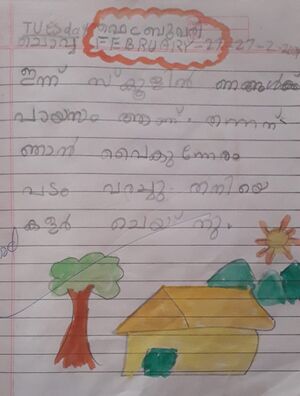 TUESday ഫെബ്രുവരി
ചൊവ്വ FEBRUARY-27-27-2-
ഇന്ന് സ്കൂളിൽ ഞങ്ങൾക്ക
പായസം ആണ് തന്നത്
ഞാൻ വൈകുന്നേരം
പടം വരച്ചു. തനിയെ
കളർ ചെയ്തു.